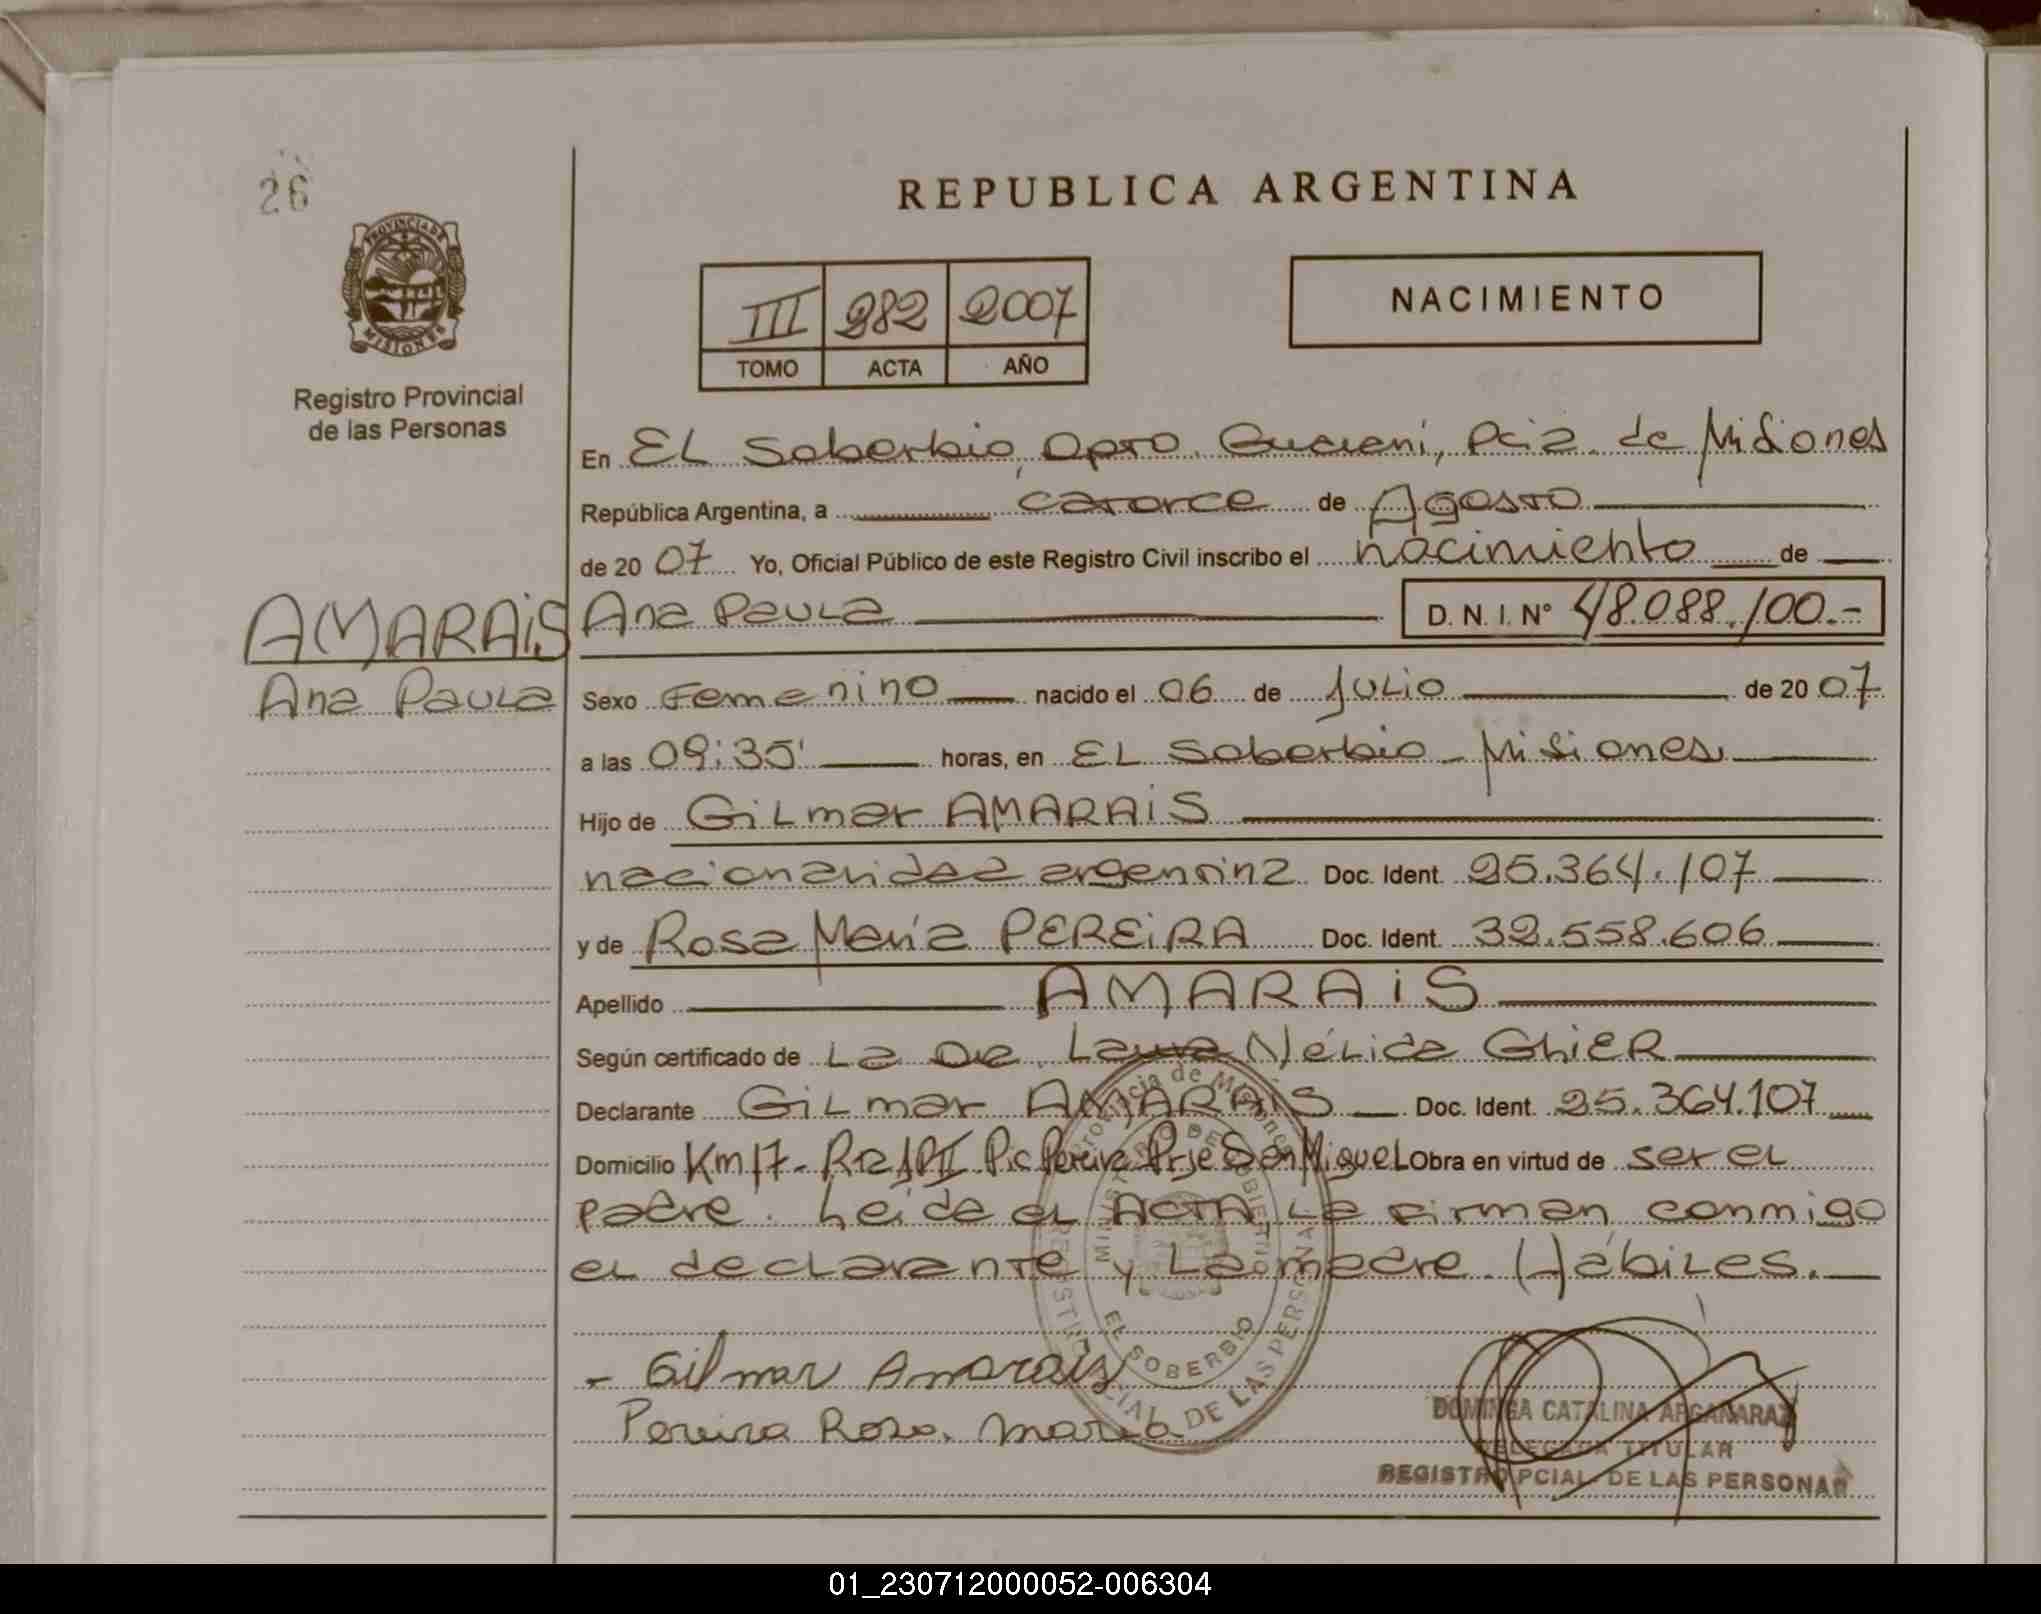 26
PROVINCIA DE
MISIONES
Registro Provincial
de las Personas
REPUBLICA ARGENTINA
III 282 2007
TOMO ACTA AÑO
NACIMIENTO
En EL Soberbio, Dpto. Guaraní, Pcia. de Misiones
República Argentina, a catorce de Agosto
de 2007 Yo, Oficial Público de este Registro Civil inscribo el nacimiento de
AMARAiS Ana PauLa D. N. I. N° 48.088.100.-
Ana PauLa
Sexo Femenino nacido el 06 de Julio de 2007
a las 09:35' horas, en EL Soberbio - Misiones
Hijo de GiLmar AMARAiS
nacionalidad argentina Doc. Ident. 25.364.107
y de Rosa María PEREiRA Doc. Ident. 32.558.606
Apellido AMARAiS
Según certificado de La Dra. Laura NéLida GhiER
Declarante GiLmar AMARAiS Doc. Ident. 25.364.107
Domicilio Km17- Pic Pereira Prje San MigueL Obra en virtud de ser eL
padre. Leida eL ACTA, La firman conmigo
eL decLarante y La madre. HábiLes.
Provincia de Misiones
MINISTERIO DE GOBIERNO
EL SOBERBIO
REGISTRO PROVINCIAL DE LAS PERSONAS
- Gilmar Amarais
Pereira Rosa Maria
DOMINGA CATALINA ARGAÑARAZ
DELEGADA TITULAR
REGISTRO PCIAL. DE LAS PERSONAS
01_230712000052-006304